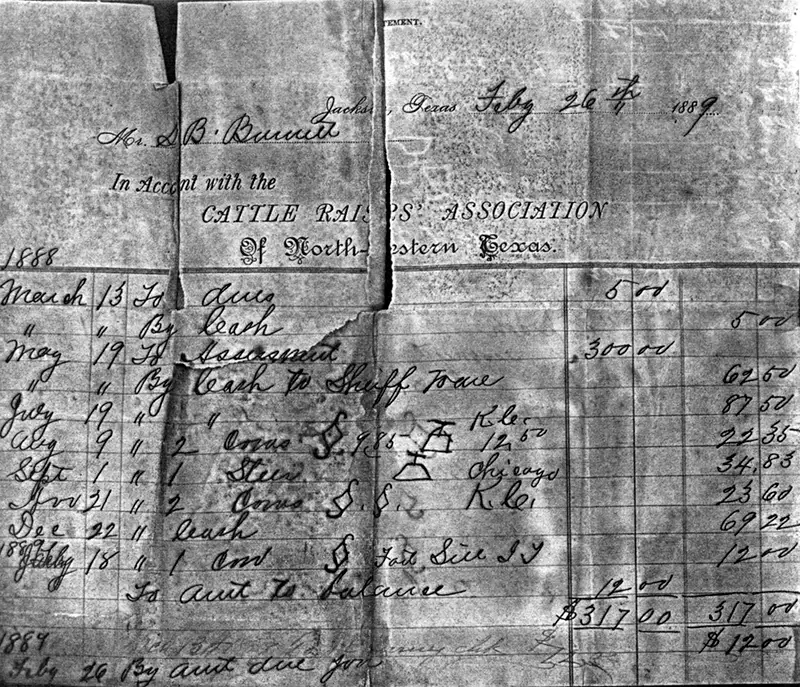 TEMENT.
Jacksb, Texas Feby 26th 1889
Mr. S B. Burnett
In Accont with the
CATTLE RAISERS' ASSOCIATION
Of North-Western Texas.
1888
March 13 To dues 5 00
" " By Cash 5 00
May 19 To Assesment 300 00
" " By Cash to Sheriff 62 50
July 19 " " 87 50
Aug 9 " 2 Cows 9.85 12 50 K.C. 22 35
Sept 1 " 1 Steer Chicago 34.83
Nov 21 " 2 Cows K.C. 23 60
Dec 22 " Cash 69 22
1889 Feby 18 " 1 Cow Fort Sill I T 12 00
To amt to balance 12 00
$317 00 317 00
1889 $12 00
Feby 26 By amt due you